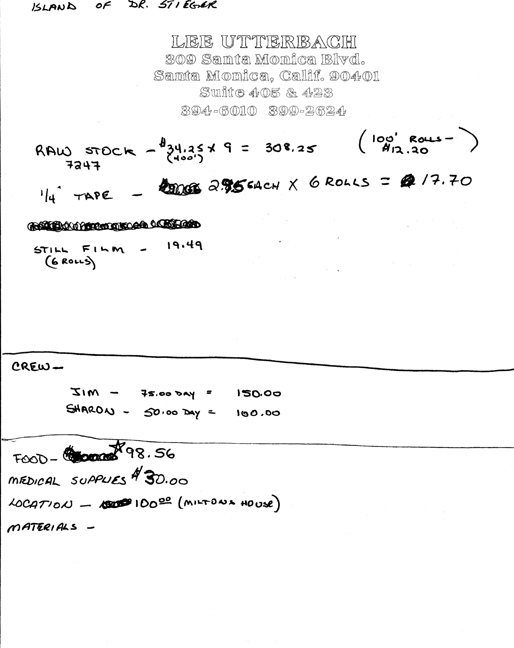 ISLAND OF DR. STIEGER
LEE UTTERBACH
309 Santa Monica Blvd.
Santa Monica, Calif. 90401
Suite 405 & 423
394-6010 399-2624
RAW STOCK - $34.25 x 9 = 308.25 (100' ROLLS -
7247 (400') $12.20)
1/4" TAPE - 2.95 EACH X 6 ROLLS = 17.70
STILL FILM - 19.49
(6 ROLLS)
CREW -
JIM - 75.00 DAY = 150.00
SHARON - 50.00 DAY = 100.00
FOOD - 98.56
MEDICAL SUPPLIES $30.00
LOCATION - 100.00 (MILTONS HOUSE)
MATERIALS -